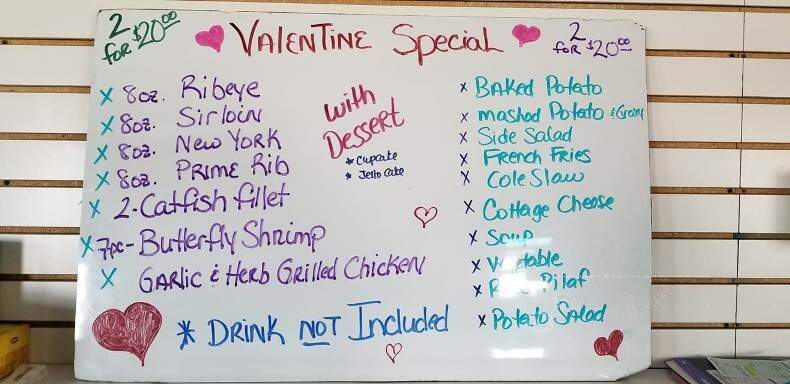 2 FOR $20.00
VALENTINE Special
2 FOR $20.00
x 8oz. Ribeye
x 8oz. Sirloin
x 8oz. New York
x 8oz. PRIME Rib
x 2-Catfish fillet
x 7pc- Butterfly Shrimp
x GARlic & HERB GRilled ChickeN
with
DESSERT
* Cupcake
* Jello Cake
x BAKed Potato
x mashed Potato & Gravy
x Side Salad
x FRench FRies
x Cole Slaw
x Cottage Cheese
x Soup
x
x Pilaf
x Potato SAlad
* DRINK NOT Included